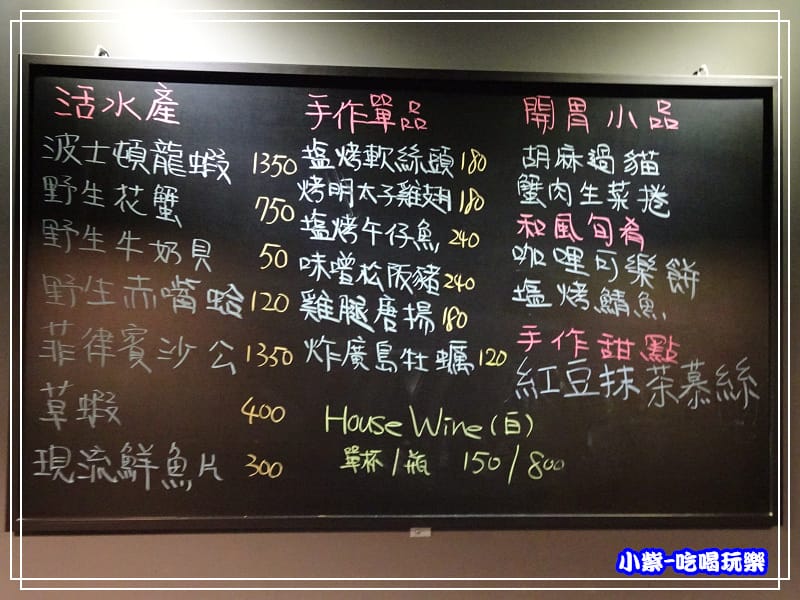 活水產
波士頓龍蝦 1350
野生花蟹 750
野生牛奶貝 50
野生赤嘴蛤 120
菲律賓沙公 1350
草蝦 400
現流鮮魚片 300
手作單品
塩烤軟絲頭 180
烤明太子雞翅 180
塩烤午仔魚 240
味噌松阪豬 240
雞腿唐揚 180
炸廣島牡蠣 120
House Wine (白)
單杯/瓶 150/800
開胃小品
胡麻過貓
蟹肉生菜捲
和風旬肴
咖哩可樂餅
塩烤鯖魚
手作甜點
紅豆抹茶慕絲
小紫-吃喝玩樂